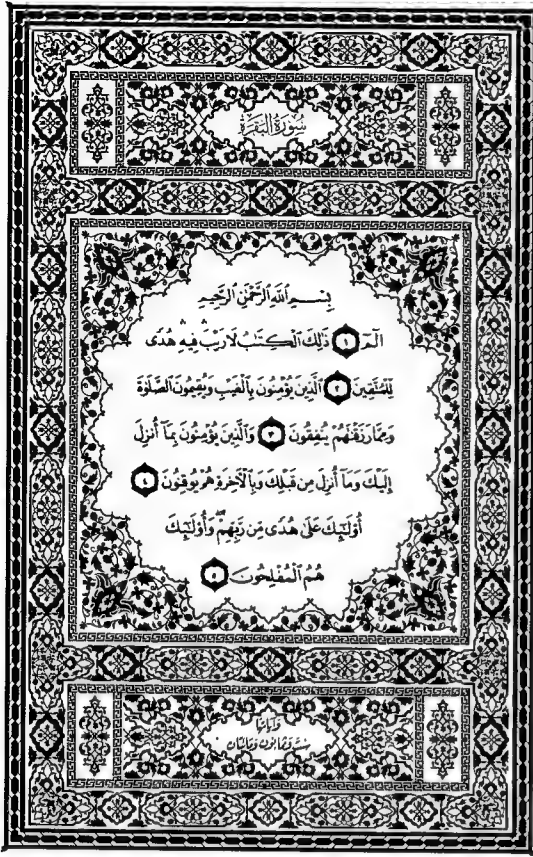 سُورَةُ البَقَرَةِ
بِسْمِ ٱللَّهِ ٱلرَّحْمَٰنِ ٱلرَّحِيمِ
الٓمٓ ١ ذَٰلِكَ ٱلْكِتَٰبُ لَا رَيْبَ ۛ فِيهِ ۛ هُدًى
لِّلْمُتَّقِينَ ٢ ٱلَّذِينَ يُؤْمِنُونَ بِٱلْغَيْبِ وَيُقِيمُونَ ٱلصَّلَوٰةَ
وَمِمَّا رَزَقْنَٰهُمْ يُنفِقُونَ ٣ وَٱلَّذِينَ يُؤْمِنُونَ بِمَآ أُنزِلَ
إِلَيْكَ وَمَآ أُنزِلَ مِن قَبْلِكَ وَبِٱلْـَٔاخِرَةِ هُمْ يُوقِنُونَ ٤
أُو۟لَٰٓئِكَ عَلَىٰ هُدًى مِّن رَّبِّهِمْ ۖ وَأُو۟لَٰٓئِكَ
هُمُ ٱلْمُفْلِحُونَ ٥
وَآيَاتُهَا
سِتٌّ وَثَمَانُونَ وَمِائَتَانِ